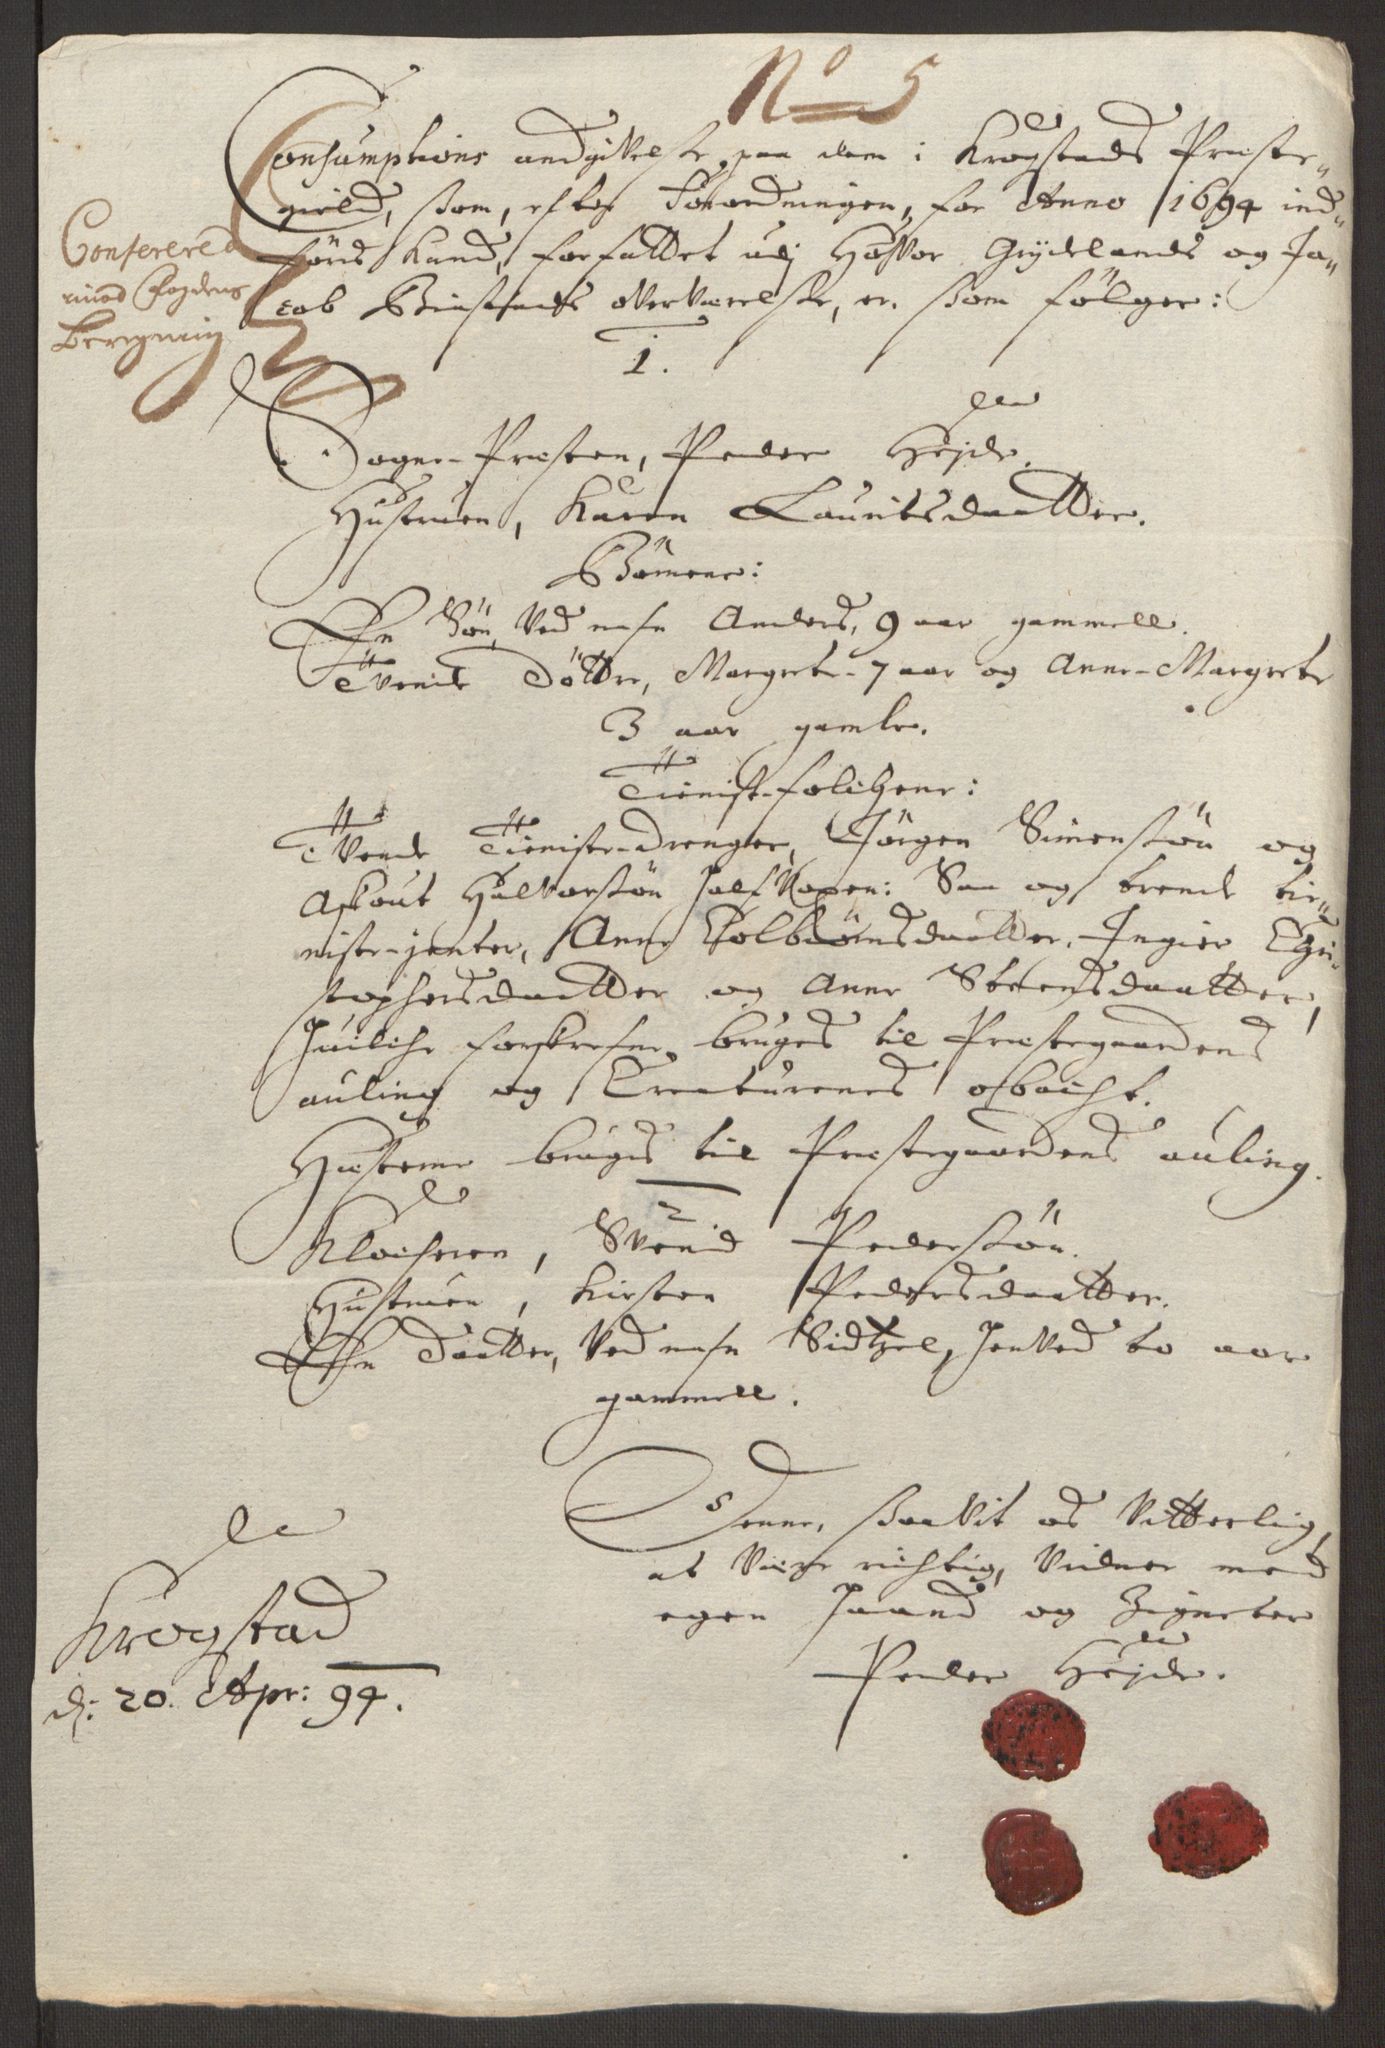 No 5
Consumptions andgivelse paa dem i Krogstads Præste-
gield, som, efter Forordningen, for Anno 1694 ind-
føris kand, forfattet udj Haffvor Grydelands og Ja-
cob Binstads offverværelse, er, som følger:
Conferered
med Fogdens
beregning
1.
Sogne-Præsten, Peder Hejde.
Hustruen, Karen Lauritsdaatter.
Børnene:
En Søn, ved nafn Anders, 9 aar gammell.
Tvende Døttre, Margrete 7 aar og Anne-Margrete
3 aar gamle.
Tienist-folchene:
Tvende Tieniste-drenger, Jörgen Simensøn og
Assout Halvorsøn halfvoxen: Saa og trende tie-
niste-jenter, Anne Colbiørnsdaatter, Ingier Chri-
stophersdaatter og Anne Steensdaatter,
huilche forskrefne bruges til Præstegaardens
auling og Creaturenes obacht.
Hæstene brugis til Præstegaardens auling.
2
Klocheren, Svend Pedersøn.
Hustruen, Kirsten Pedersdaatter.
En Daatter, ved nafn Sidtzel, henved to aar
gammell.
Denne, saavit os vitterlig,
at være richtig, vidner med
egen haand og Zigneter
Peder Hejde.
Krogstad
d: 20. Apr: 94.